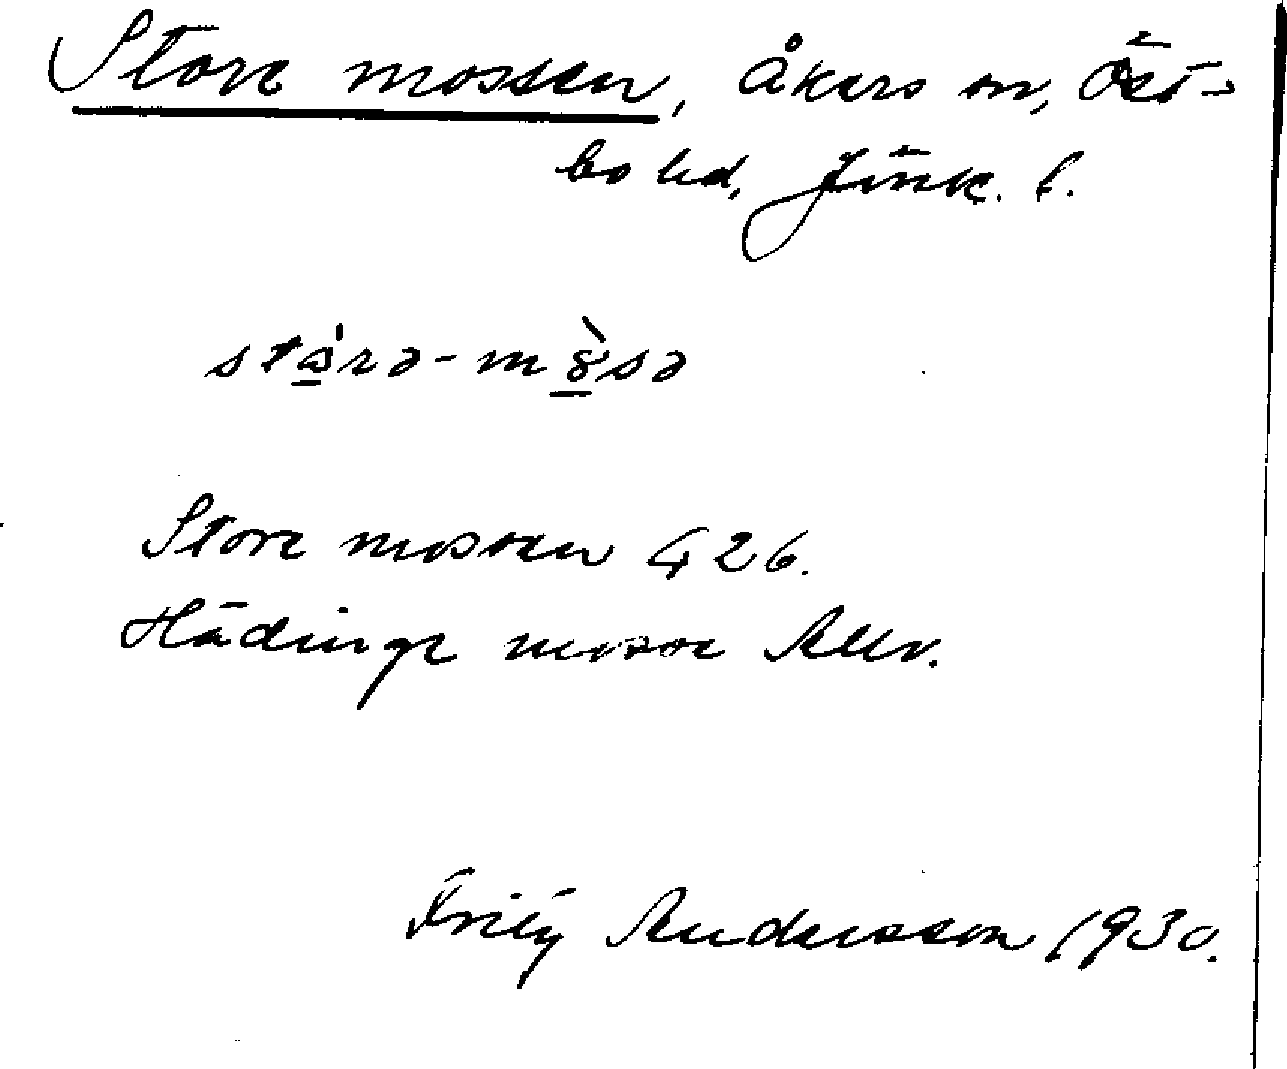 Store mossen, Åkers sn, Öst-
bo hd, Jönk. l.
stårə-mòsə
Store mossen G 26.
Hädinge mosse Allv.
Fritz Andersson 1930.